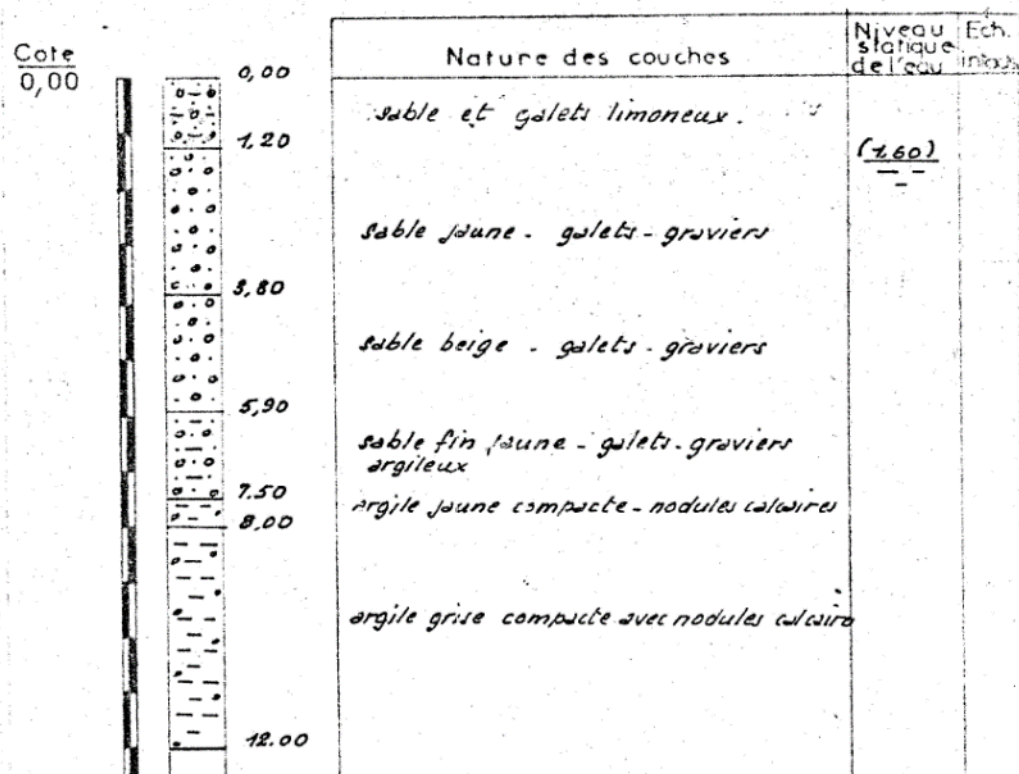 Cote
0,00
Nature des couches
Niveau
statique
de l'eau
Ech.
0,00
sable et galets limoneux.
1,20
(1.60)
sable jaune - galets - graviers
3,80
sable beige - galets - graviers
5,90
sable fin jaune - galets - graviers
argileux
7.50
argile jaune compacte - nodules calcaires
8,00
argile grise compacte avec nodules calcaire
12.00